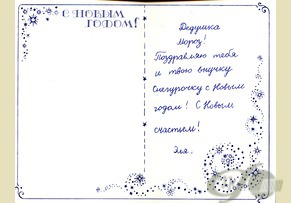 С НОВЫМ
ГОДОМ!
Дедушка
Мороз!
Поздравляю тебя
и твою внучку
Снегурочку с Новым
годом! С Новым
счастьем!
Эля.